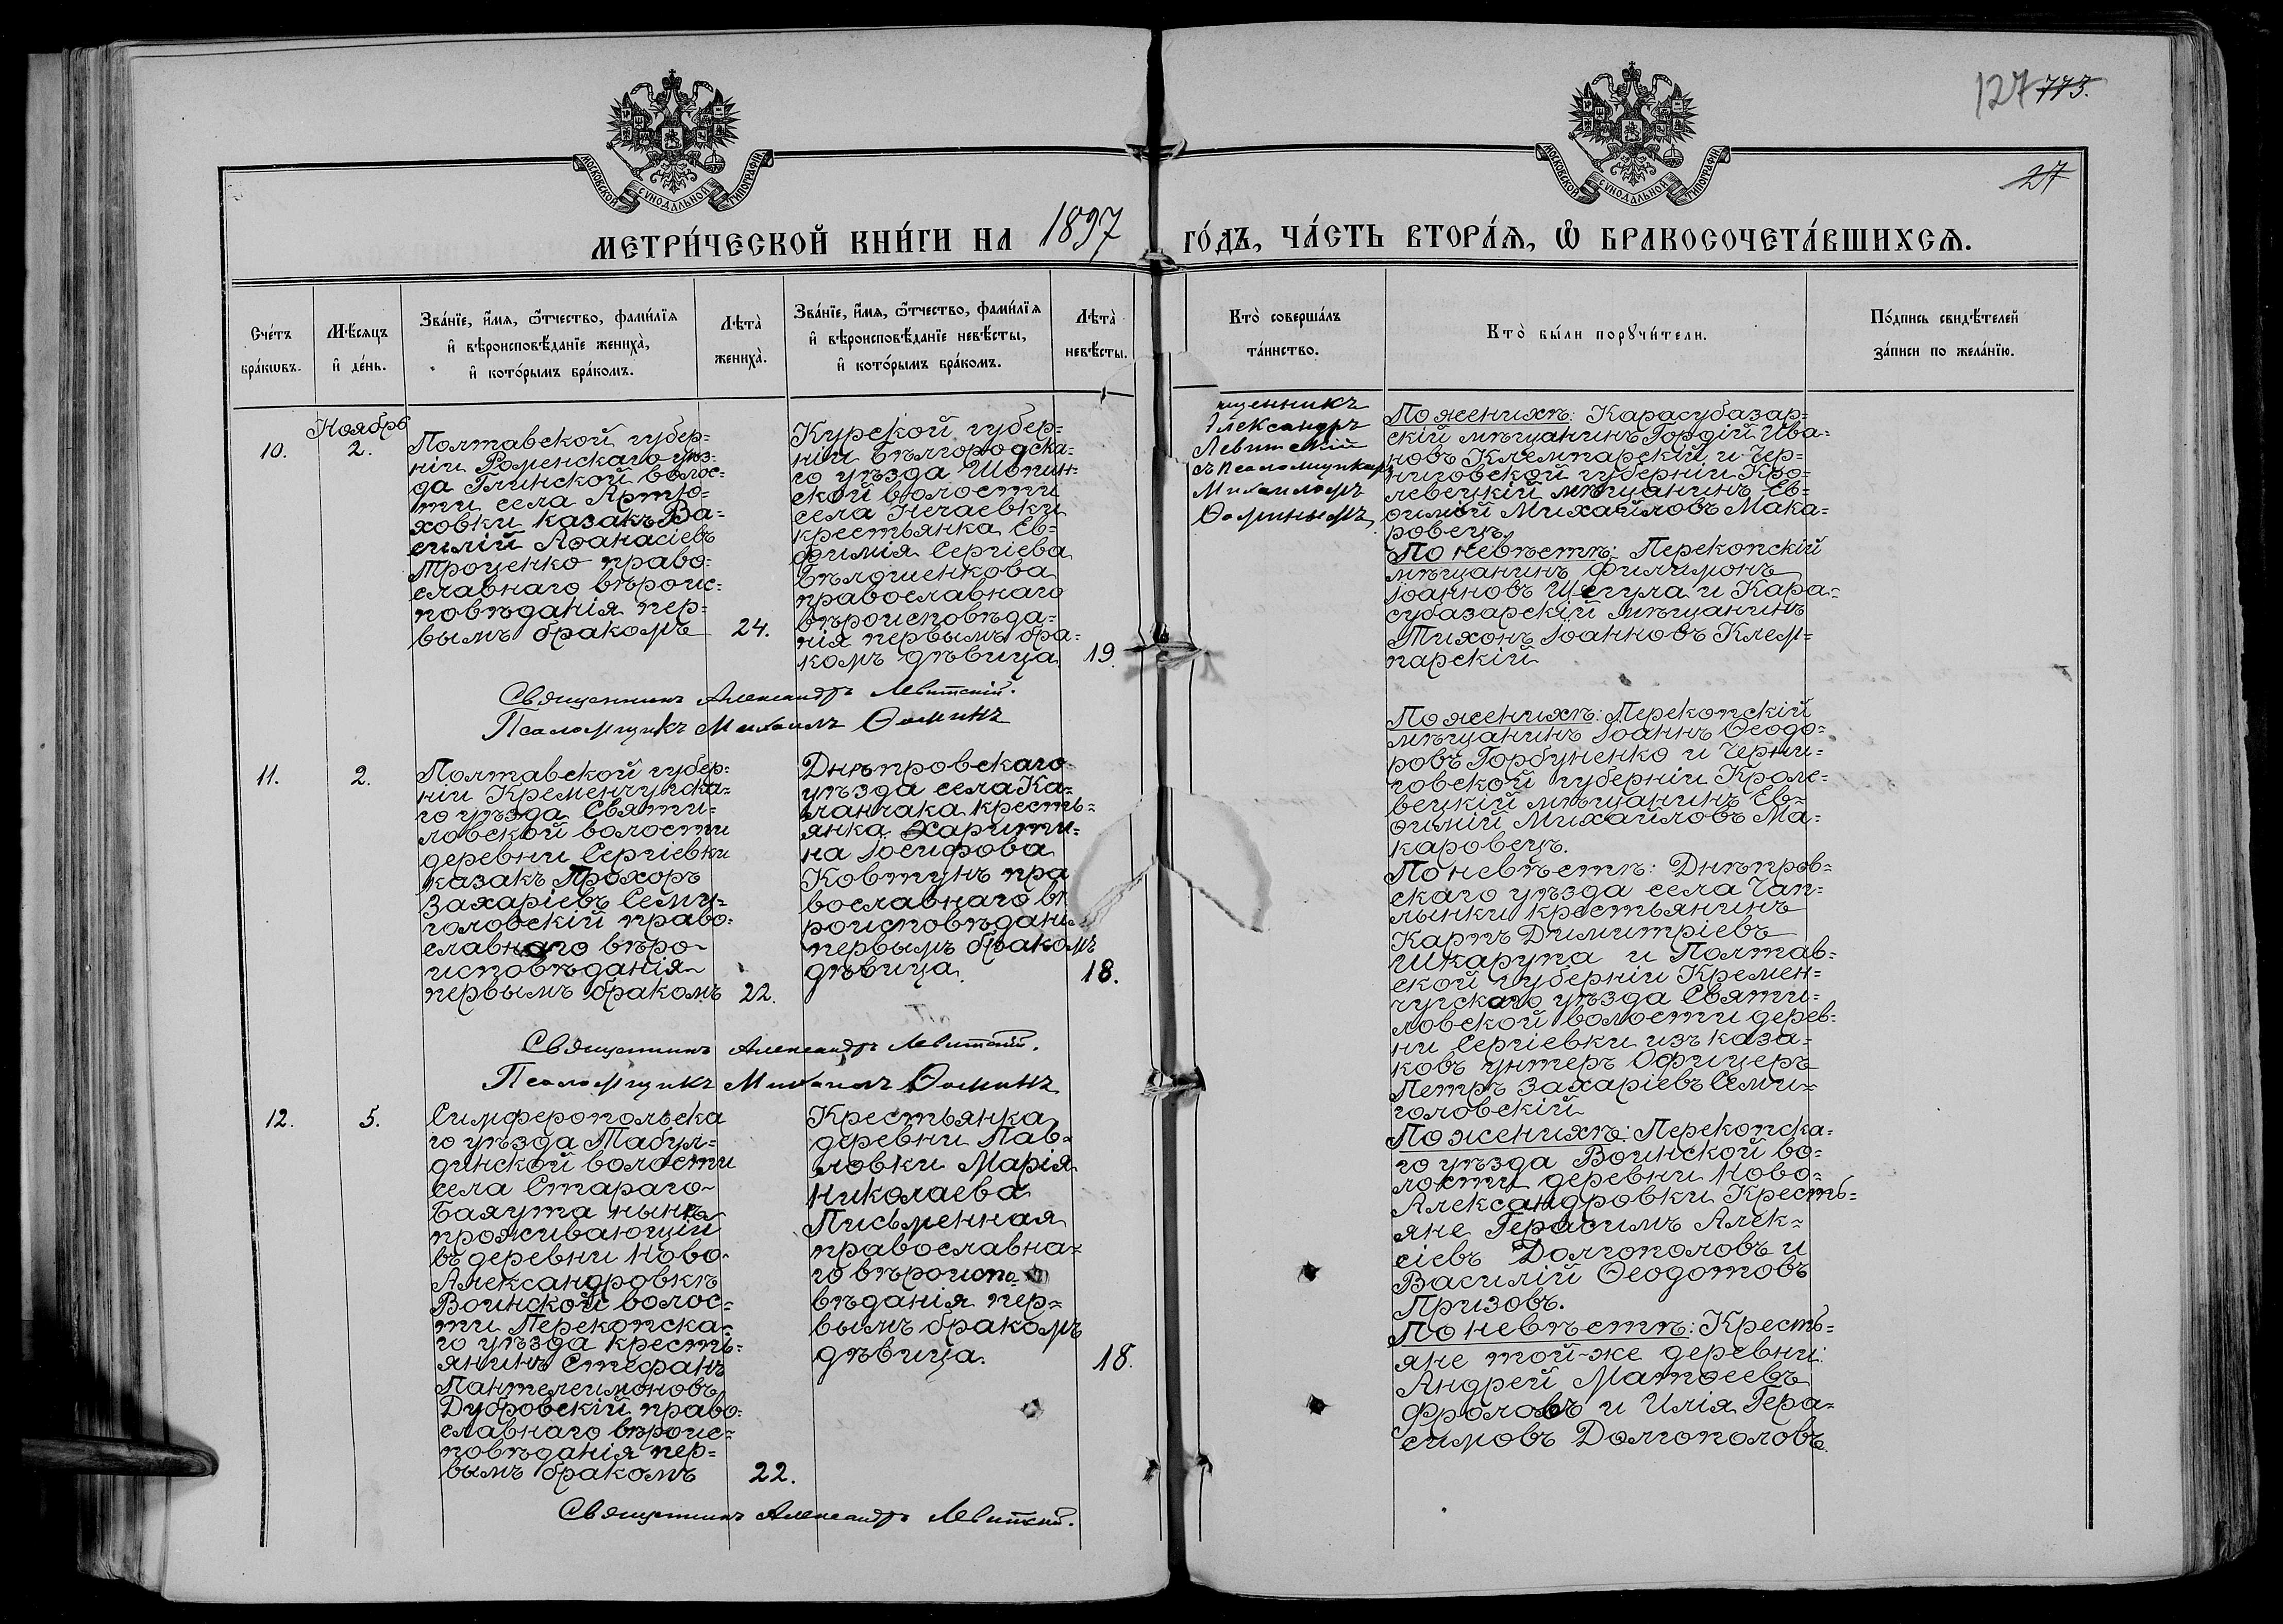 127 773.
27
МОСКОВСКОЙ СѴНОДАЛЬНОЙ ТИПОГРАФІИ
МОСКОВСКОЙ СѴНОДАЛЬНОЙ ТИПОГРАФІИ
МЕТРИ́ЧЕСКОЙ КНИ́ГИ НА 1897 ГО́ДЪ, ЧА́СТЬ ВТОРА́Ѧ, Ѽ БРАКОСОЧЕТА́ВШИХСѦ.
Сче́тъ
бра́кѡвъ.
Мѣ́сяцъ
и҆ де́нь.
Зва́нїе, и҆́мѧ, ѻ҆́тчество, фами́лїѧ
и҆ вѣроисповѣ́данїе жениха̀,
и҆ кото́рымъ бра́комъ.
Лѣта̀
жениха̀.
Зва́нїе, и҆́мѧ, ѻ҆́тчество, фами́лїѧ
и҆ вѣроисповѣ́данїе невѣ́сты,
и҆ кото́рымъ бра́комъ.
Лѣта̀
невѣ́сты.
Кто̀ соверша́лъ
та́инство.
Кто̀ бы́ли порꙋчи́тели.
По́дпись свидѣ́телей
за́писи по жела́нїю.
10.
Ноябрь
2.
Полтавской губер=
ніи Роменскаго уѣз=
да Глинской волос=
ти села Артю=
ховки казакъ Ва=
силій Аѳанасіевъ
Троценко право=
славнаго вѣроис=
повѣданія пер=
вымъ бракомъ
24.
Курской губер=
ніи Бѣлгородска=
го уѣзда Шопин=
ской волости
села Нечаевки
крестьянка Ев=
фимія Сергіева
Бѣлошенкова
православнаго
вѣроисповѣда=
нія первымъ бра=
комъ дѣвица
19.
щенникъ
Александръ
Левитскій
съ псаломщикомъ
Михаиломъ
Ѳоминымъ
По женихѣ: Карасубазар=
скій мѣщанинъ Гордій Ива=
новъ Клемпарскій и Чер=
ниговской губерніи Кро=
левецкій мѣщанинъ Ев=
ѳимій Михайловъ Мака=
ровецъ.
По невѣстѣ: Перекопскій
мѣщанинъ Филимонъ
Іоанновъ Щегула и Кара=
субазарскій мѣщанинъ
Тихонъ Іоанновъ Клем=
парскій
Священникъ Александръ Левитскій.
Псаломщикъ Михаилъ Ѳоминъ
11.
2.
Полтавской губер=
ніи Кременчугска=
го уѣзда Святи=
ловской волости
деревни Сергіевки
казакъ Прохоръ
Захаріевъ Семи=
головскій право=
славнаго вѣро=
исповѣданія
первымъ бракомъ
22.
Днѣпровскаго
уѣзда села Ка=
ланчака кресть=
янка Харити=
на Іосифова
Ковтунъ пра
вославнаго вѣ
роисповѣданія
первымъ бракомъ
дѣвица.
18.
По женихѣ: Перекопскій
мѣщанинъ Іоаннъ Ѳеодо=
ровъ Горбуненко и Черни=
говской губерніи Кроле=
вецкій мѣщанинъ Ев=
ѳимій Михайловъ Ма=
каровецъ.
По невѣстѣ: Днѣпров=
скаго уѣзда села Чап=
лынки крестьянинъ
Карпъ Димитріевъ
Шкарупа и Полтав=
ской губерніи Кремен=
чугскаго уѣзда Святи=
ловской волости дерев=
ни Сергіевки изъ каза=
ковъ унтеръ Офицеръ
Петръ Захаріевъ Семи=
головскій
Священникъ Александръ Левитскій.
Псаломщикъ Михаилъ Ѳоминъ
12.
5.
Симферопольска
го уѣзда Табул=
динской волости
села Стараго
Баяута нынѣ
проживающій
въ деревни Ново=
Александровкѣ
Воинской волос=
ти Перекопска=
го уѣзда кресть=
янинъ Стефанъ
Пантелеимоновъ
Дубровскій право=
славнаго вѣроис=
повѣданія пер=
вымъ бракомъ
22.
Крестьянка
деревни Пав=
ловки Марія
Николаева
Письменная
православна=
го вѣроиспо=
вѣданія пер=
вымъ бракомъ
дѣвица.
18.
По женихѣ: Перекопска=
го уѣзда Воинской во=
лости деревни Ново=
Александровки Кресть=
яне Герасимъ Алек=
сіевъ Долгополовъ и
Василій Ѳеодотовъ
Призовъ.
По невѣстѣ: Кресть=
яне той-же деревни:
Андрей Матѳеевъ
Фроловъ и Илія Гера=
симовъ Долгополовъ.
Священникъ Александръ Левитскій.